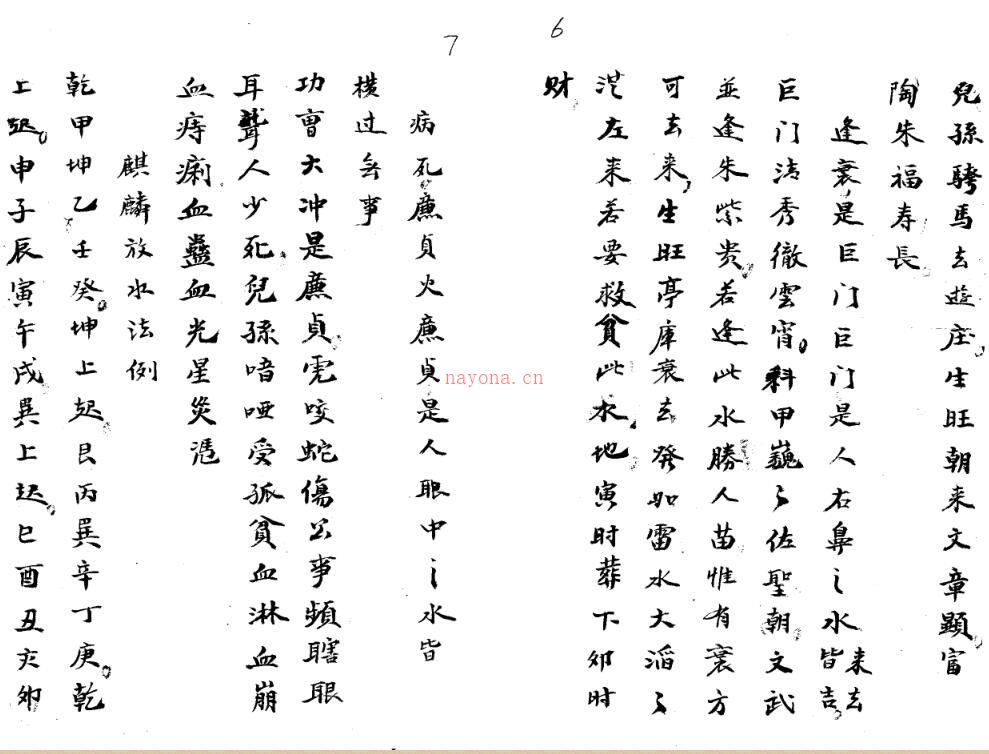 6
兒孫騎馬去遊庄生旺朝来文章顯富
陶朱福寿長
逢衰是巨门巨门是人右鼻之水皆来去吉
巨门清秀徹雲宵科甲巍々佐聖朝文武
並逢朱紫贵若逢此水勝人苗惟有衰方
可去来生旺亭庫衰去癸如雷水大滔々
左来若要救貧此水地寅时葬下夘时
财
7
病死廉貞火廉貞是人眼中之水皆
横过無事
功曹大冲是廉貞虎咬蛇傷公事頻瞎眼
耳聾人少死兒孫喑啞受孤貧血淋血崩
血痔痢血蠱血光星災憑
麒麟放水法例
乾甲坤乙壬癸坤上起艮丙巽辛丁庚乾
上起申子辰寅午戌巽上起巳酉丑亥夘
nayona.cn